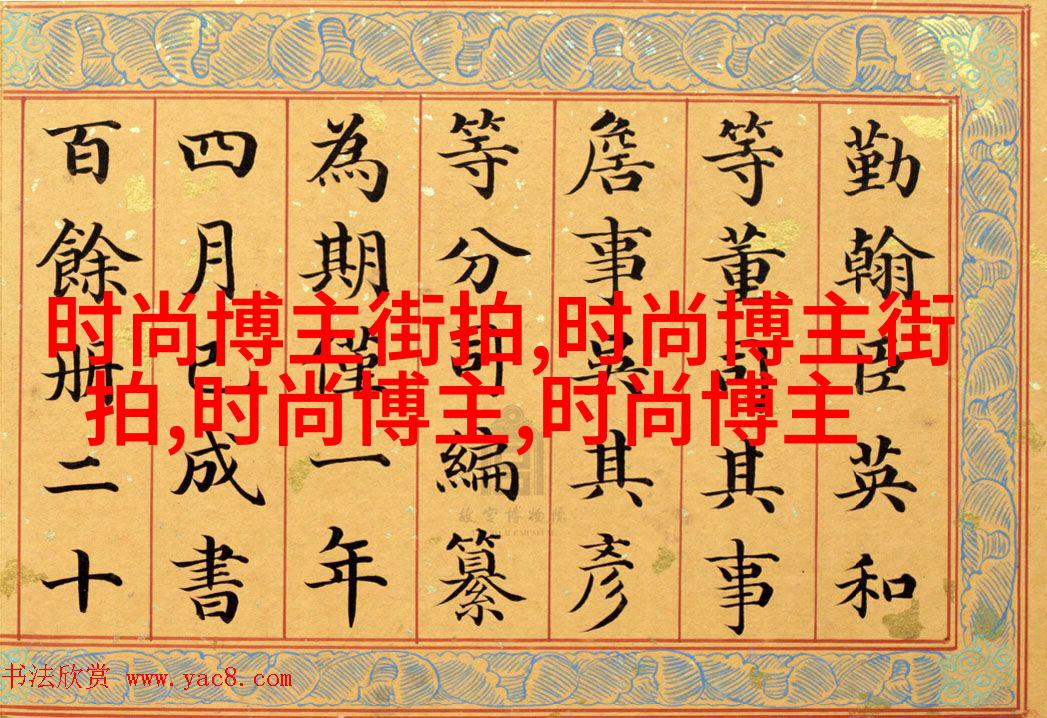 勤翰臣英和
等董司其事
詹事吳其彥
等分司編纂
為期僅一年
四月已成書
百餘冊二十
时尚博主街拍,时尚博主街
拍,时尚博主,时尚博主
故宫博物院
书法欣赏 www.yac8.com